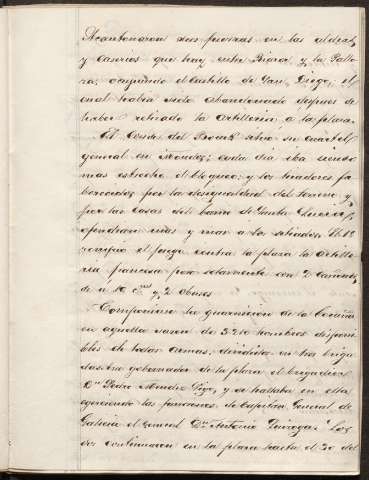 Acantonaron sus fuerzas en las aldeas,
y caserios que hay entre Bigara y la Pallo
za, ocupando el Castillo de San Diego, el
cual habia sido abandonado despues de
haber retirado la artilleria a la plaza.
El Conde del Bourk situó su cuartel
general en Monelos; cada dia iba siendo
mas estrecho el bloqueo; y los tiradores fa
borecidos por la desigualdad del terreno y
por las casas del barrio de Santa Lucia,
ofendian mas y mas a los sitiados. El 1º
rompio el fuego contra la plaza la artille
ria francesa pero solamente con 2 cañones
de a 10 y 2 obuses
Componiase la guarnicion de la Coruña
en aquella sazon de 3210 hombres disponi
bles de todas armas, divididos en tres briga
das: era gobernador de la plaza el brigadier
Dn Pedro Mendez Vigo, y se hallaba en ella
egerciendo las funciones de Capitan General de
Galicia el General Dn Antonio Quiroga. Los
dos continuaron en la plaza hasta el 20 del